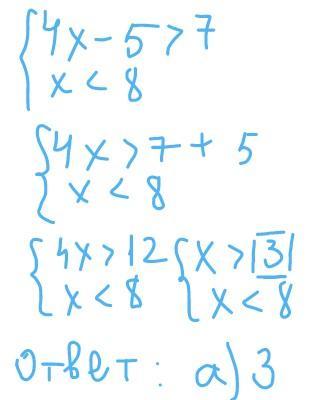 {4x - 5 > 7
x < 8
{4x > 7 + 5
x < 8
{4x > 12 {x > |3|
x < 8 x < 8
ответ: а) 3